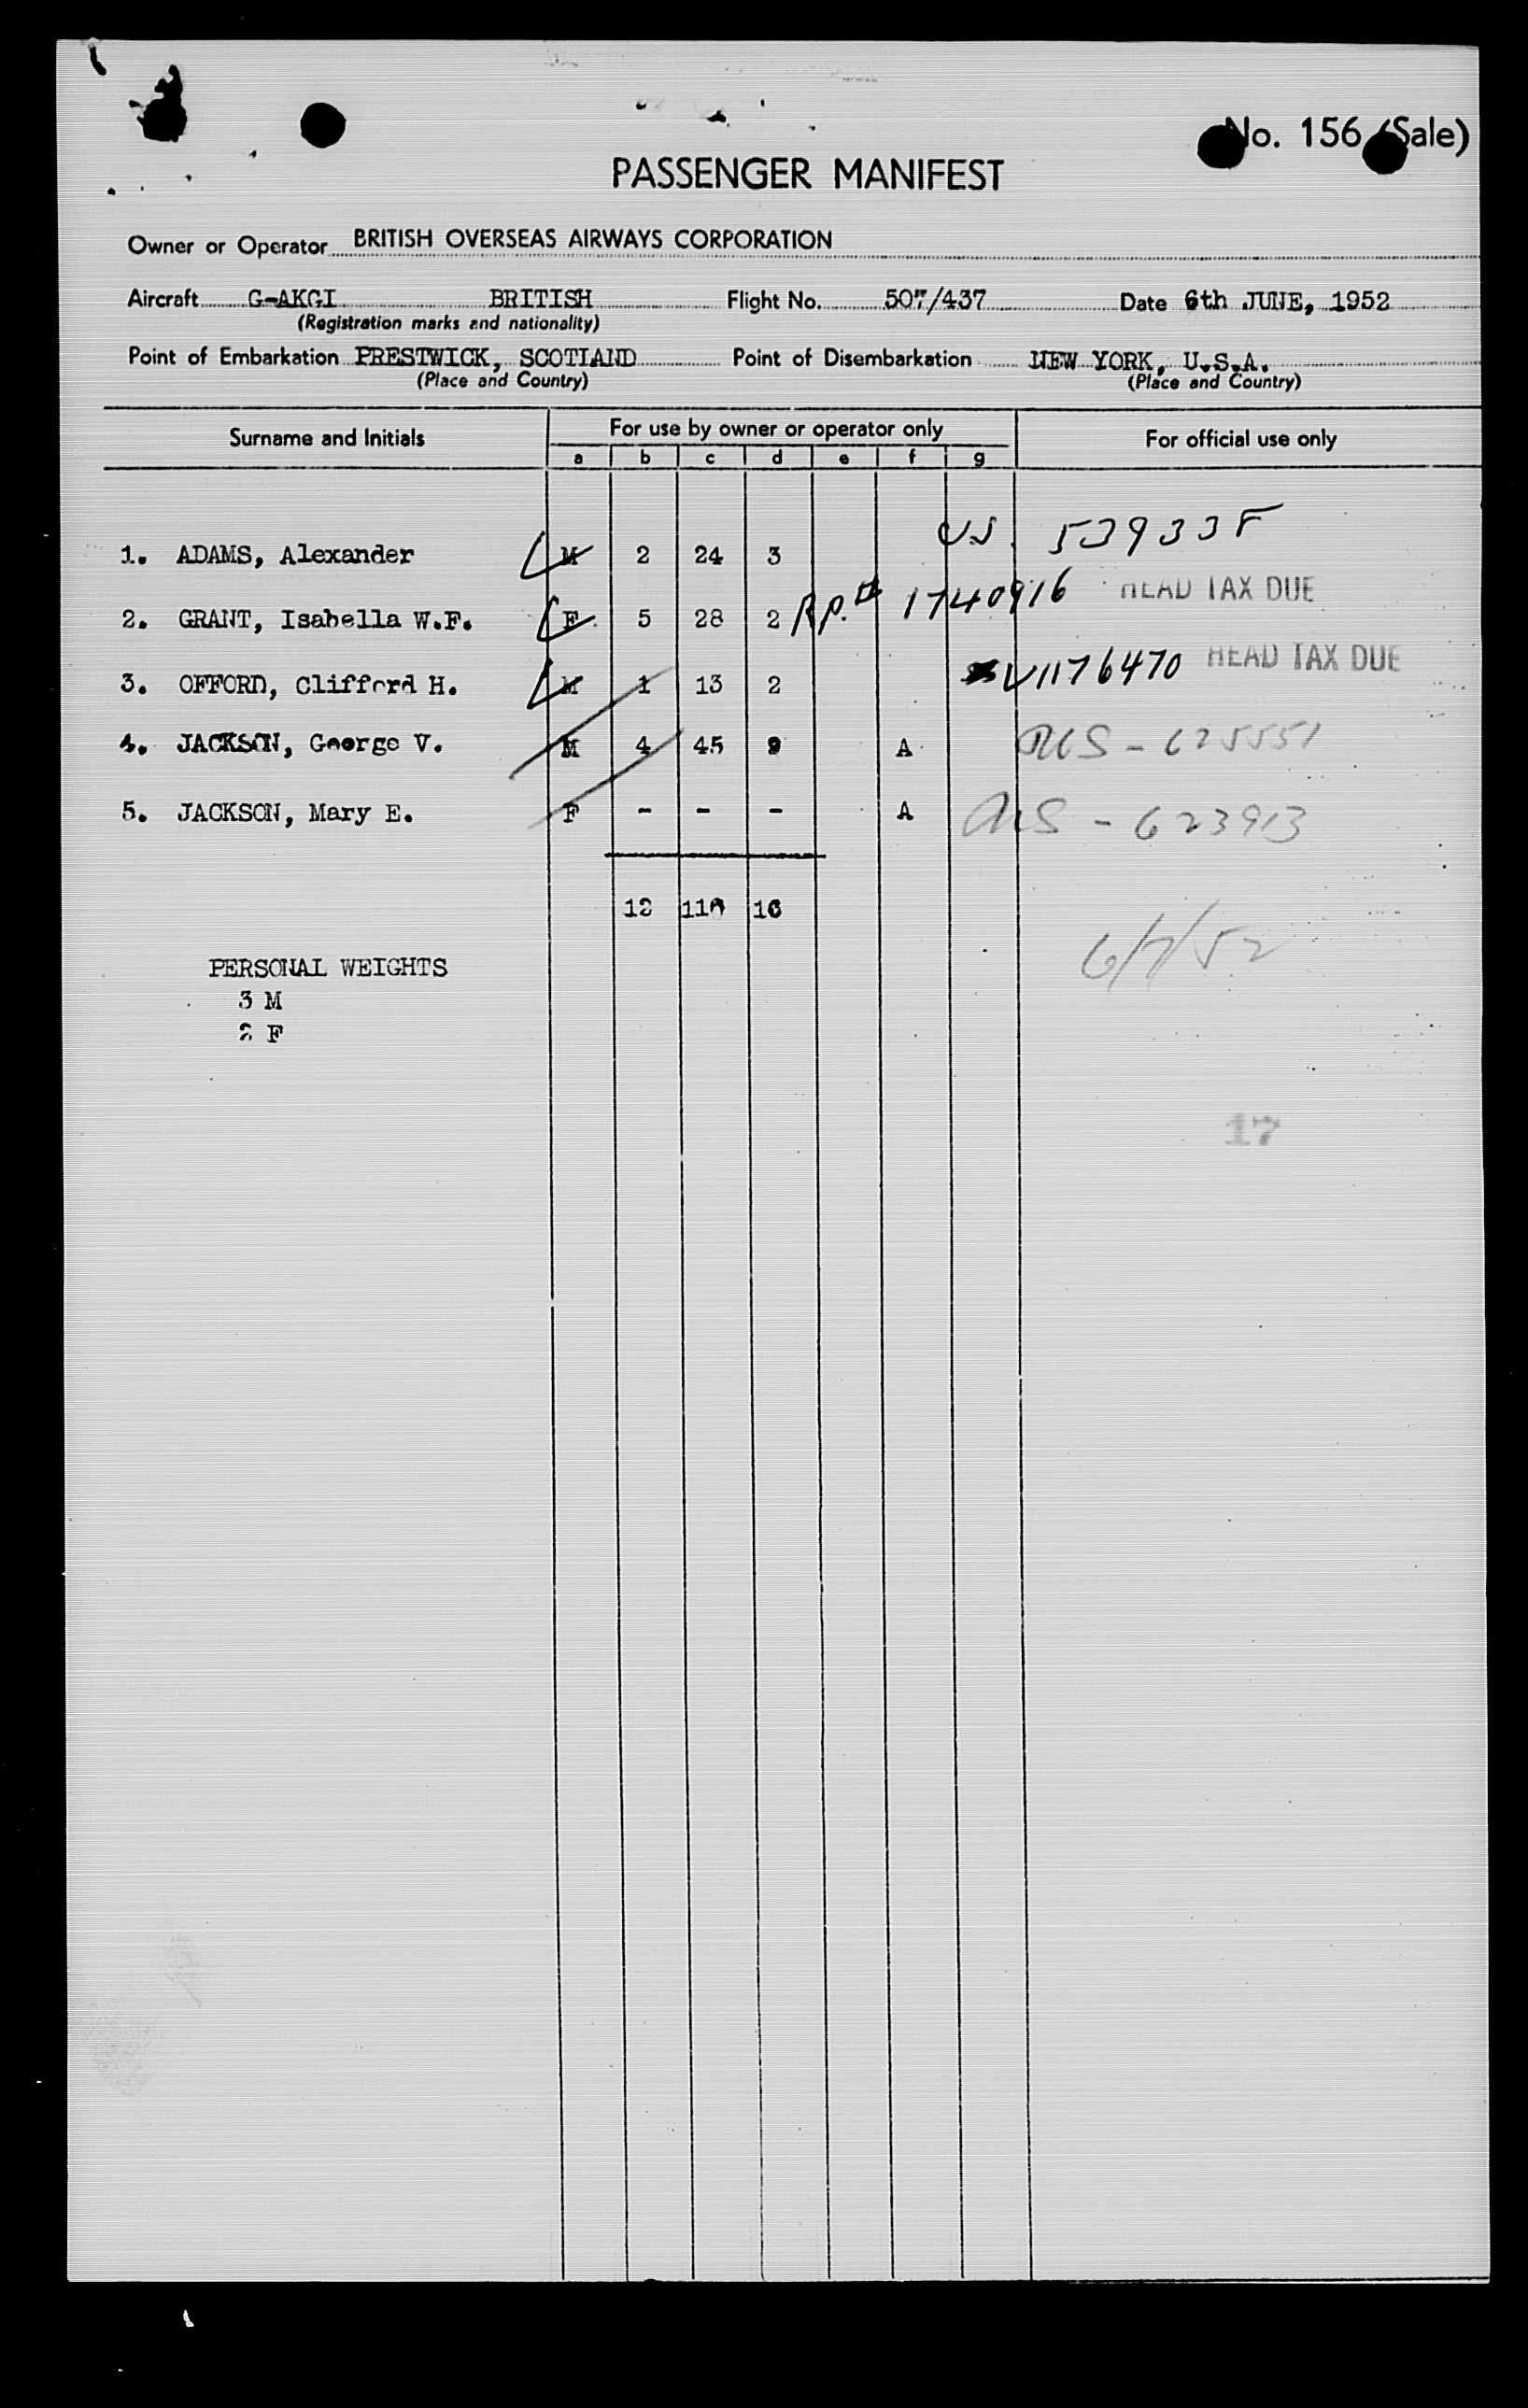 No. 156 (Sale)
PASSENGER MANIFEST
Owner or Operator BRITISH OVERSEAS AIRWAYS CORPORATION
Aircraft G-AKGI BRITISH Flight No. 507/437 Date 6th JUNE, 1952
(Registration marks and nationality)
Point of Embarkation PRESTWICK, SCOTLAND Point of Disembarkation NEW YORK, U.S.A.
(Place and Country) (Place and Country)
Surname and Initials For use by owner or operator only For official use only
a b c d e f g
US 53933F
1. ADAMS, Alexander M 2 24 3
2. GRANT, Isabella W.F. F 5 28 2 1740916 HEAD TAX DUE
3. OFFORD, Clifford H. M 1 13 2 V1176470 HEAD TAX DUE
4. JACKSON, George V. M 4 45 9 A - 625551
5. JACKSON, Mary E. F - - - A - 623913
12 110 16
6/7/52
PERSONAL WEIGHTS
3 M
2 F
17